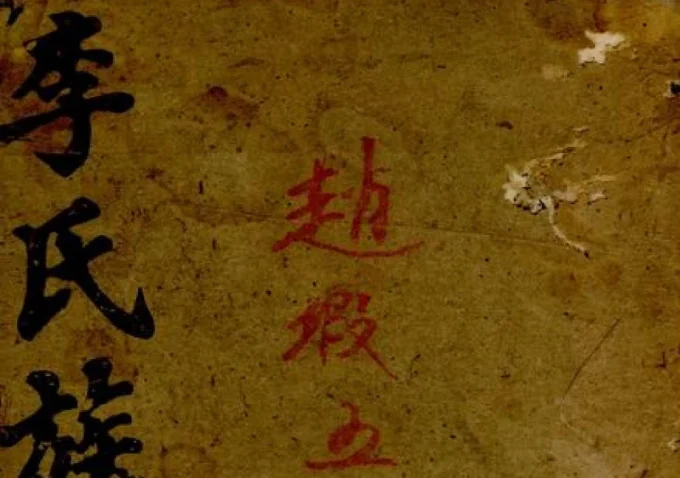 趙瑕五
李氏族